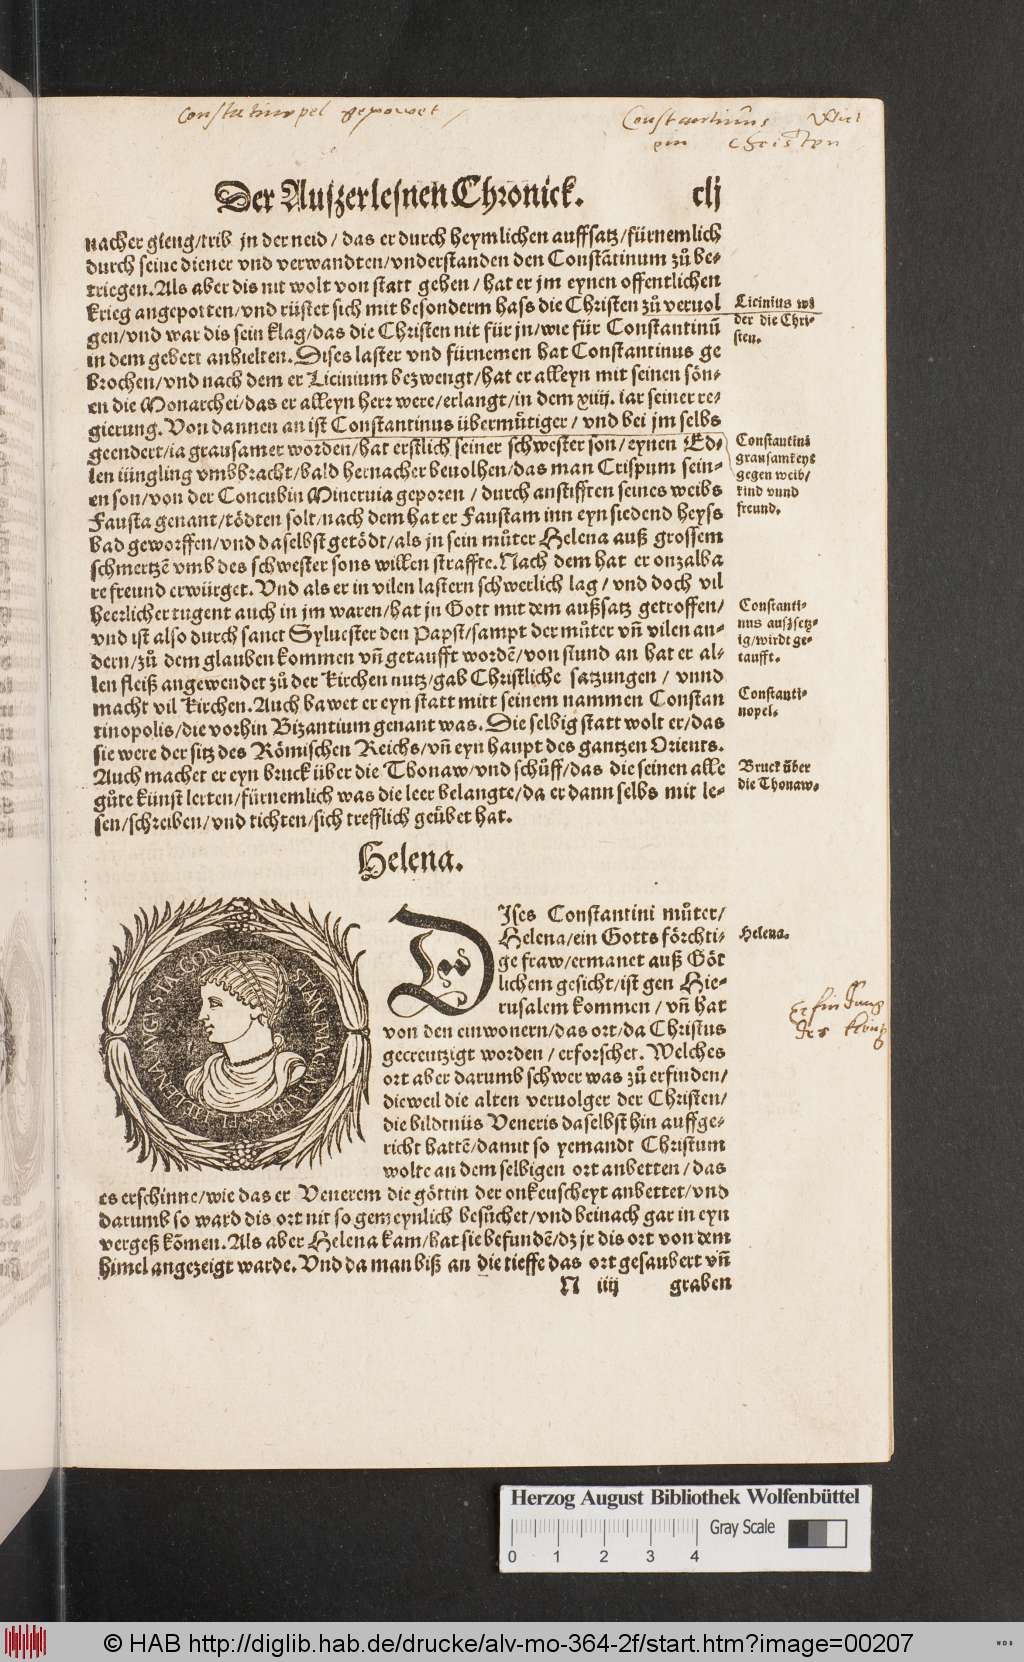 Constantinopel gepowet
Constantinus Wirt
ein Christen
Der Auſzerleſnen Chronick. clj
nacher gieng/trib jn der neid/das er durch heymlichen auffſatz/fürnemlich
durch ſeine diener vnd verwandten/vnderſtanden den Conſtãtinum zů be-
triegen. Als aber dis nit wolt von ſtatt gehen/hat er jm eynen offentlichen
krieg angepotten/vnd rüſtet ſich mit beſonderm haſs die Chriſten zů veruol
gen/vnd war dis ſein klag/das die Chriſten nit für jn/wie für Conſtantinũ
in dem gebett anhielten. Diſes laſter vnd fürnemen hat Conſtantinus ge
brochen/vnd nach dem er Licinium bezwengt/hat er alleyn mit ſeinen ſön-
en die Monarchei/das er alleyn herr were/erlangt/in dem xiiij. iar ſeiner re-
gierung. Von dannen an iſt Conſtantinus übermůtiger/vnd bei jm ſelbs
geendert/ia grauſamer worden/hat erſtlich ſeiner ſchweſter ſon/eynen Ed-
len iüngling vmbbracht/bald hernacher beuolhen/das man Criſpum ſein-
en ſon/von der Concubin Mineruia geporen/durch anſtifften ſeines weibs
Fauſta genant/tödten ſolt/nach dem hat er Fauſtam inn eyn ſiedend heyſs
bad geworffen/vnd daſelbſt getödt/als jn ſein můter Helena auß groſſem
ſchmertzẽ vmb des ſchweſter ſons willen ſtraffte. Nach dem hat er onzalba
re freund erwürget. Vnd als er in vilen laſtern ſchwerlich lag/vnd doch vil
heerlicher tugent auch in jm waren/hat jn Gott mit dem außſatz getroffen/
vnd iſt alſo durch ſanct Sylueſter den Papſt/ſampt der můter vñ vilen an-
dern/zů dem glauben kommen vñ getaufft wordẽ/von ſtund an hat er al-
len fleiß angewendet zů der kirchen nutz/gab Chriſtliche ſatzungen/vnnd
macht vil kirchen. Auch bawet er eyn ſtatt mitt ſeinem nammen Conſtan
tinopolis/die vorhin Bizantium genant was. Die ſelbig ſtatt wolt er/das
ſie were der ſitz des Römiſchen Reichs/vñ eyn haupt des gantzen Orients.
Auch machet er eyn bruck über die Thonaw/vnd ſchůff/das die ſeinen alle
gůte künſt lerten/fürnemlich was die leer belangte/da er dann ſelbs mit le-
ſen/ſchreiben/vnd tichten/ſich trefflich geübet hat.
Licinius wi
der die Chri-
ſten.
Conſtantins
grauſamkeyt
gegen weib/
kind vnnd
freund.
Conſtanti-
nus auſzſetz-
ig/wirdt ge-
taufft.
Conſtanti-
nopel.
Bruck über
die Thonaw.
Helena.
DIſes Conſtantini můter/
Helena/ein Gotts förchti-
ge fraw/ermanet auß Göt
lichem geſicht/iſt gen Hie-
ruſalem kommen/vñ hat
von den einwonern/das ort/da Chriſtus
gecreutzigt worden/erforſchet. Welches
ort aber darumb ſchwer was zů erfinden/
dieweil die alten veruolger der Chriſten/
die bildtnüs Veneris daſelbſt hin auffge-
richt hattẽ/damit ſo yemandt Chriſtum
wolte an dem ſelbigen ort anbetten/das
es erſchinne/wie das er Venerem die göttin der onkeuſcheyt anbettet/vnd
darumb ſo ward dis ort nit ſo gemeynlich beſůchet/vnd beinach gar in eyn
vergeß kõmen. Als aber Helena kam/hat ſie befundẽ/dz jr dis ort von dem
himel angezeigt warde. Vnd da man biß an die tieffe das ort geſaubert vñ
N iiij graben
Helena.
Erfindung
des
Herzog August Bibliothek Wolfenbüttel
Gray Scale
0 1 2 3 4
© HAB http://diglib.hab.de/drucke/alv-mo-364-2f/start.htm?image=00207